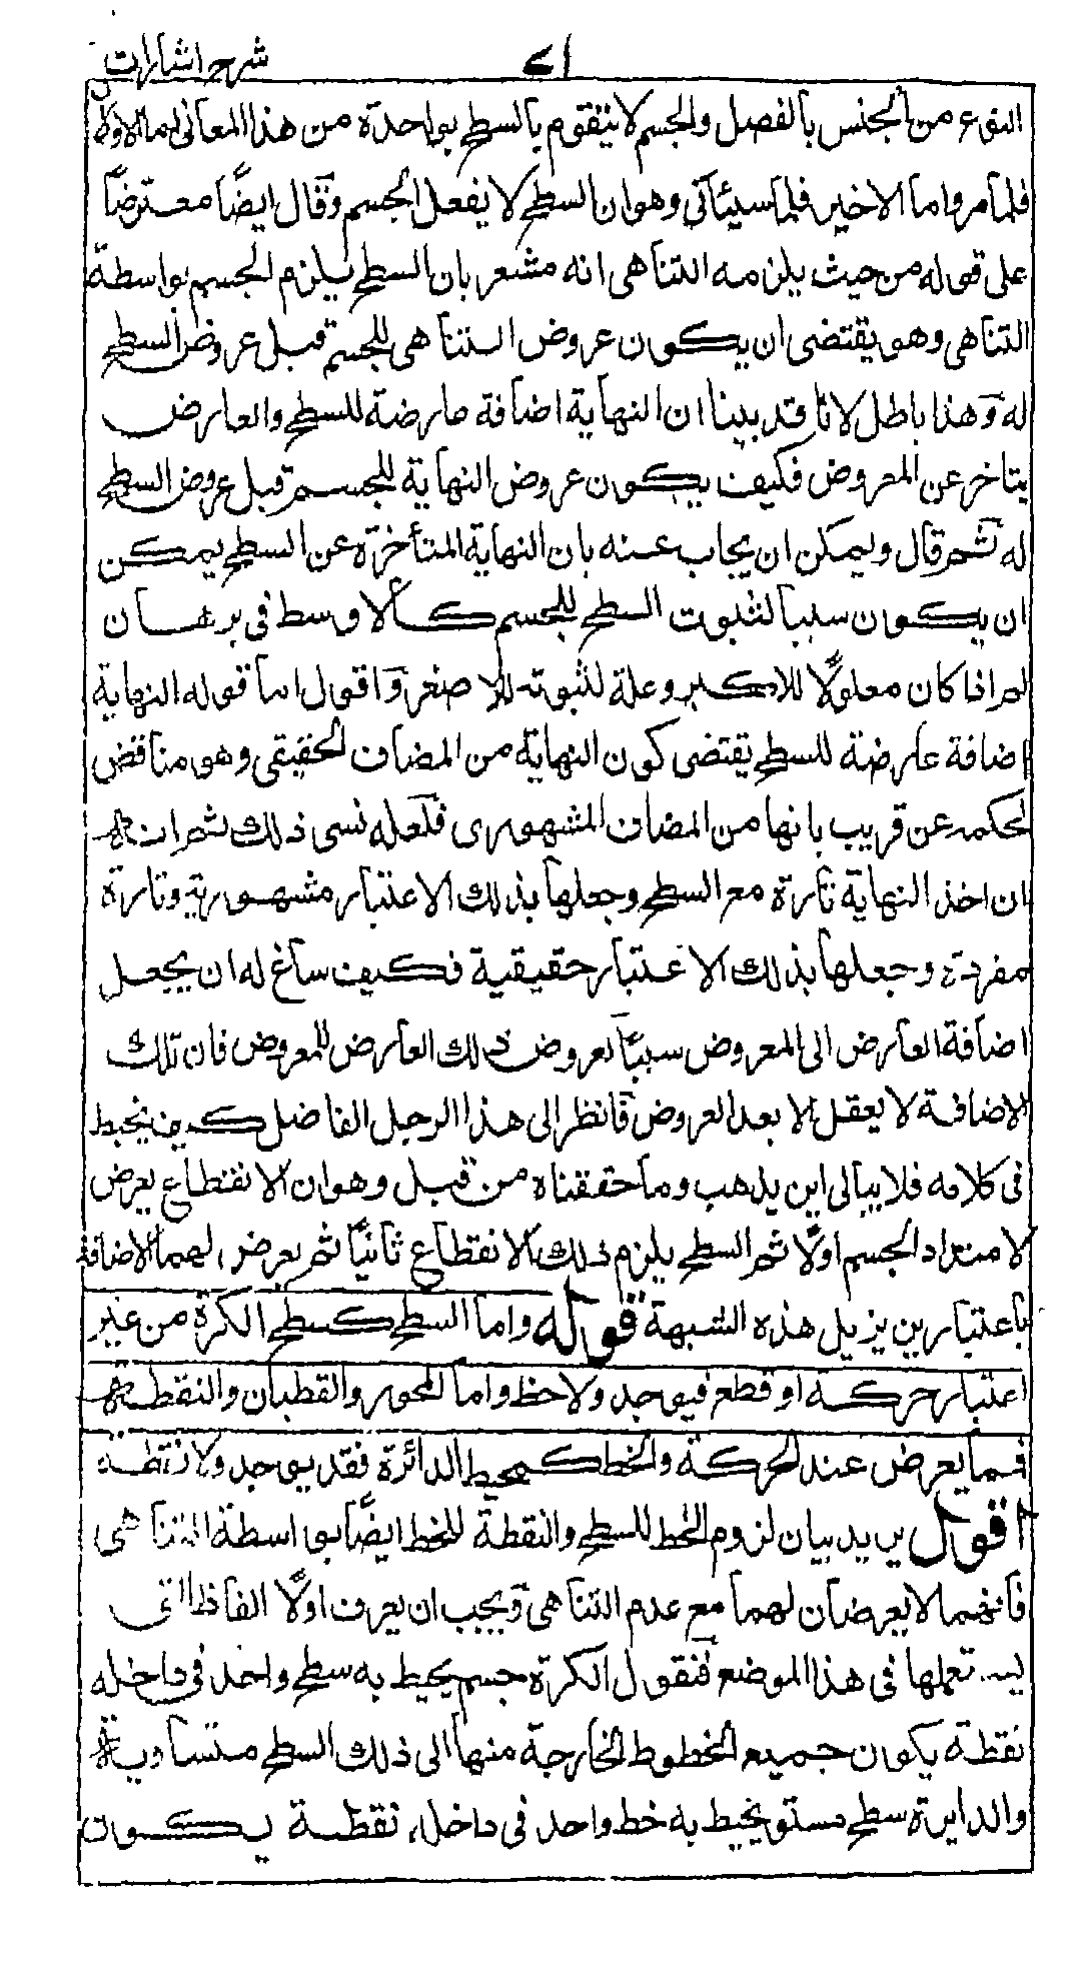 شرح اشارات
النوع من الجنس بالفصل والجسم لا يتقوم بالسطح بواحدة من هذا المعانى اما الاولان
فلما مر واما الاخير فلما سيئاتى وهو ان السطح لا يفعل الجسم وقال ايضًا معترضًا
على قوله من حيث يلزمه التناهى انه مشعر بان السطح يلزم الجسم بواسطة
التناهى وهو يقتضى ان يكون عروض التناهى للجسم قبل عروض السطح
له وهذا باطل لانا قد بينا ان النهاية اضافة عارضة للسطح والعارض
يتاخر عن المعروض فكيف يكون عروض النهاية للجسم قبل عروض السطح
له ثم قال ويمكن ان يجاب عنه بان النهاية المتأخرة عن السطح يمكن
ان يكون سببا لثبوت السطح للجسم كالاوسط فى برهان
لم اذا كان معلولًا للاكبر وعلة لثبوته للاصغر واقول اما قوله النهاية
اضافة عارضة للسطح يقتضى كون النهاية من المضاف الحقيقى وهو مناقض
لحكمه عن قريب بانها من المضاف المشهورى فلعله نسى ذلك ثم ان
ان اخذ النهاية تارة مع السطح وجعلها بذلك الاعتبار مشهورية وتارة
مفردة وجعلها بذلك الاعتبار حقيقية فكيف ساغ له ان يجعل
اضافة العارض الى المعروض سببًا لعروض ذلك العارض للمعروض فان تلك
الاضافة لا يعقل الا بعد العروض فانظر الى هذا الرجل الفاضل كيف يخبط
فى كلامه فلا يبالى اين يذهب وما حققناه من قبل وهو ان الانقطاع يعرض
لامتداد الجسم اولًا ثم السطح يلزم ذلك الانقطاع ثانيًا ثم يعرض لهما الاضافة
باعتبارين يزيل هذه الشبهة قوله واما السطح كسطح الكرة من غير
اعتبار حركة او قطع فيوجد ولا خط واما المحور والقطبان والنقطة
فمما يعرض عند الحركة والخط كمحيط الدائرة فقد يوجد ولا نقطة
اقول يريد بيان لزوم الخط للسطح والنقطة للخط ايضًا بواسطة التناهى
فانهما لا يعرضان لهما مع عدم التناهى ويجب ان يعرف اولًا الفاظ التى
يستعملها فى هذا الموضع فنقول الكرة جسم يحيط به سطح واحد فى داخله
نقطة يكون جميع الخطوط الخارجة منها الى ذلك السطح متساوية
والدايرة سطح مستو يحيط به خط واحد فى داخله نقطة يكون